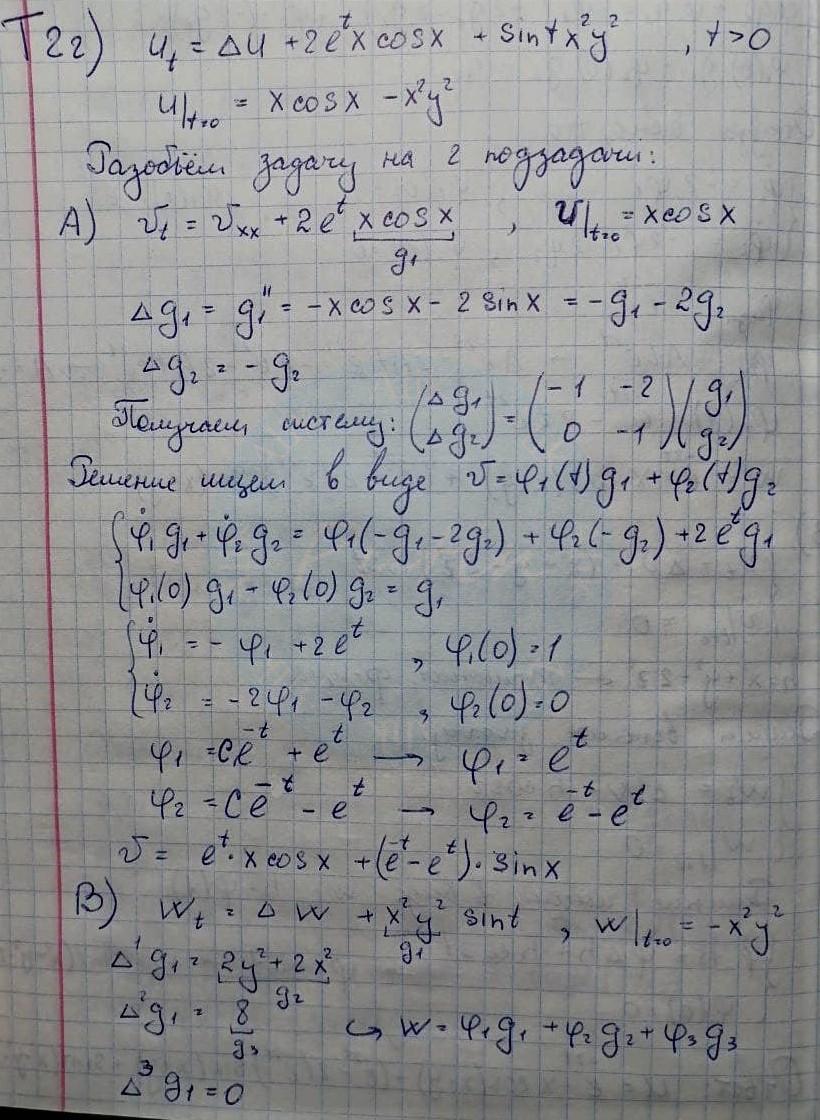 T2г) u_t = Δu + 2e^t x cosx + sint x²y² , t>0
u|_{t=0} = x cosx - x²y²
Разобьём задачу на 2 подзадачи:
A) v_t = v_xx + 2e^t x cosx , v|_{t=0} = x cosx
g₁
Δg₁ = g₁'' = -x cosx - 2 sinx = -g₁ - 2g₂
Δg₂ = -g₂
Получаем систему: (Δg₁ Δg₂) = (-1 -2 0 -1)(g₁ g₂)
Решение ищем в виде v = φ₁(t)g₁ + φ₂(t)g₂
{ φ̇₁g₁ + φ̇₂g₂ = φ₁(-g₁-2g₂) + φ₂(-g₂) + 2e^t g₁
φ₁(0) g₁ - φ₂(0) g₂ = g₁
{ φ̇₁ = -φ₁ + 2e^t , φ₁(0)=1
φ̇₂ = -2φ₁ - φ₂ , φ₂(0)=0
φ₁ = Ce^{-t} + e^t → φ₁ = e^t
φ₂ = Ce^{-t} - e^t → φ₂ = e^{-t} - e^t
v = e^t · x cosx + (e^{-t} - e^t) · sinx
B) w_t = Δw + x²y² sint , w|_{t=0} = -x²y²
g₁
Δ¹g₁ = 2y² + 2x²
g₂
Δ²g₁ = 8 ↪ w = φ₁g₁ + φ₂g₂ + φ₃g₃
g₃
Δ³g₁ = 0